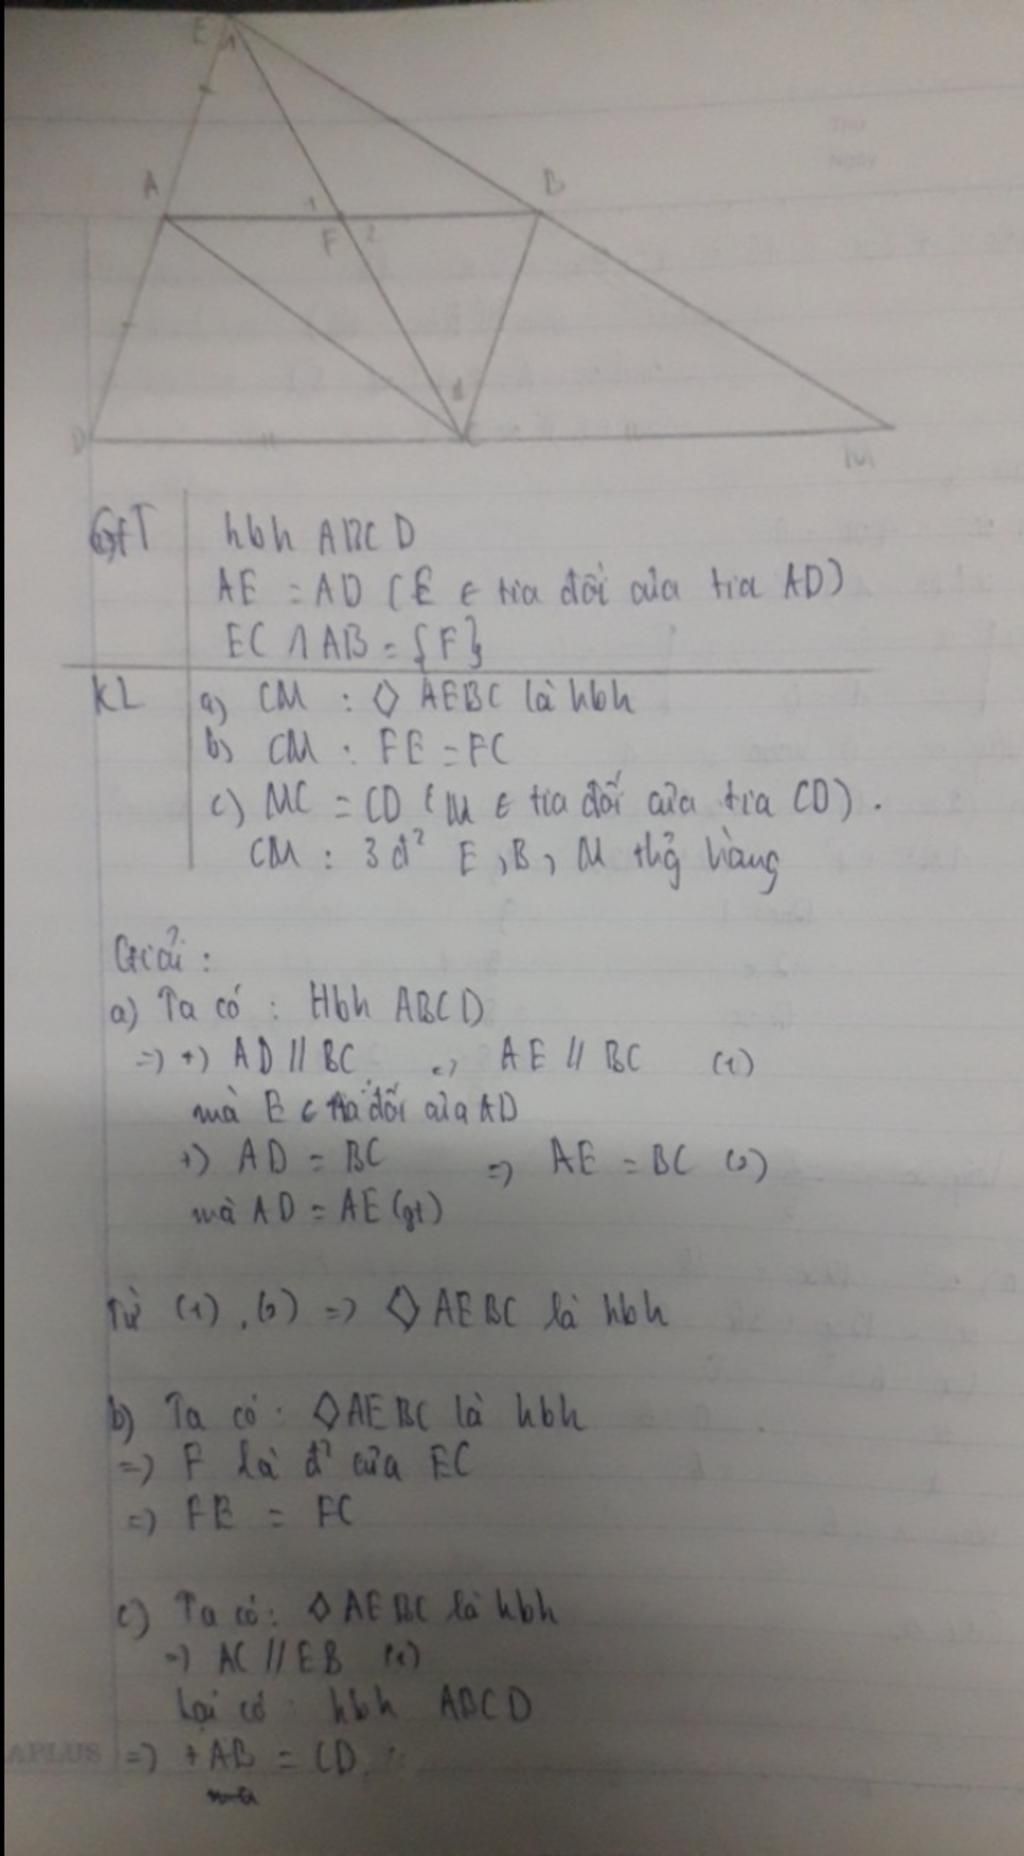 E 1
A
1
B
F 2
1
D
C
M
GT
hbh ABCD
AE = AD (E ∈ tia đối của tia AD)
EC ∩ AB = {F}
KL
a) CM : ◇ AEBC là hbh
b) CM : FE = FC
c) MC = CD (M ∈ tia đối của tia CD).
CM : 3 đ² E, B, M thẳg hàng
Giải :
a) Ta có : Hbh ABCD
=> +) AD // BC => AE // BC (1)
mà E ∈ tia đối của AD
+) AD = BC => AE = BC (2)
mà AD = AE (gt)
Từ (1), (2) => ◇ AEBC là hbh
b) Ta có : ◇ AEBC là hbh
=> F là đ² của EC
=> FE = FC
c) Ta có : ◇ AEBC là hbh
=> AC // EB (1)
Lại có : hbh ABCD
APLUS => + AB = CD
mà